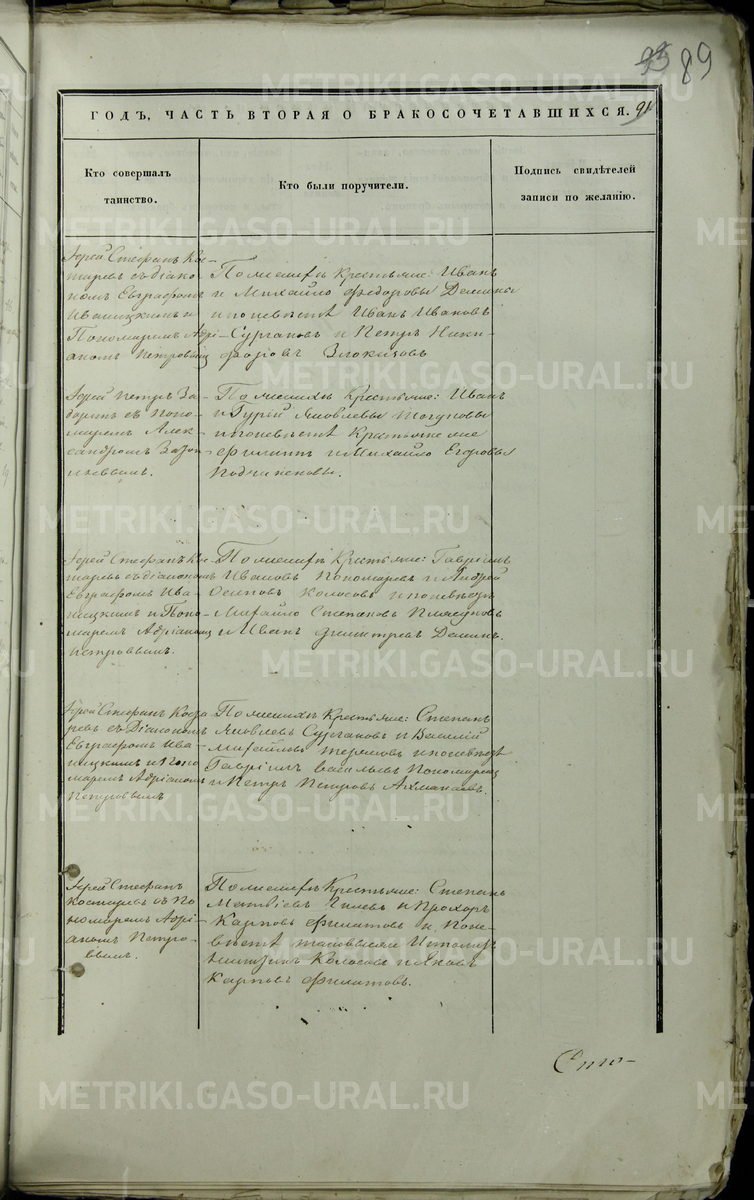 89
ГОДЪ, ЧАСТЬ ВТОРАЯ О БРАКОСОЧЕТАВШИХСЯ.
91
Кто совершалъ
таинство.
Кто были поручители.
Подпись свидѣтелей
записи по желанію.
Іерей Стефанъ Кос-
таревъ съ діако-
номъ Евграфомъ
Иваницкимъ и
Пономаремъ Адрі-
аномъ Петровым
По женихѣ Крестьяне: Иванъ
и Михайло Федоровы Демины
и по невѣстѣ Иванъ Ивановъ
Сургановъ и Петръ Ники-
форовъ Злоказовъ
Іерей Петръ За-
съ Поно-
маремъ Алек-
сандромъ
По женихѣ Крестьяне: Иванъ
и Гурій Яковлевы
и по невѣстѣ Крестьяне же
Филиппъ и Михайло Егоровы
Іерей Стефанъ Кос-
таревъ съ діакономъ
Евграфомъ Ива-
ницкимъ и Поно-
маремъ Адріаномъ
Петровымъ.
По женихѣ Крестьяне: Гавріилъ
Ивановъ Пономаревъ и Андрей
Осиповъ Колосовъ и по невѣстѣ
Михайло Степановъ Плясуновъ
и Иванъ Димитревъ Деминъ.
Іерей Стефанъ Коста
ревъ съ Діакономъ
Евграфомъ Ива-
ницкимъ и Поно-
маремъ Адріаномъ
Петровымъ
По женихѣ Крестьяне: Степанъ
Яковлевъ Сургановъ и Василій
Михайловъ и по невѣстѣ
Гавріилъ Васильевъ Пономаревъ
и Петръ Петровъ Ахманаевъ.
Іерей Стефанъ
Костаревъ съ По
номаремъ Адрі-
аномъ Петро-
вымъ.
По женихѣ Крестьяне: Степанъ
Матвіевъ и Прохоръ
Карповъ Филатовъ и по не-
вѣстѣ
Колосовъ и Яковъ
Карповъ Филатовъ.
METRIKI.GASO-URAL.RU